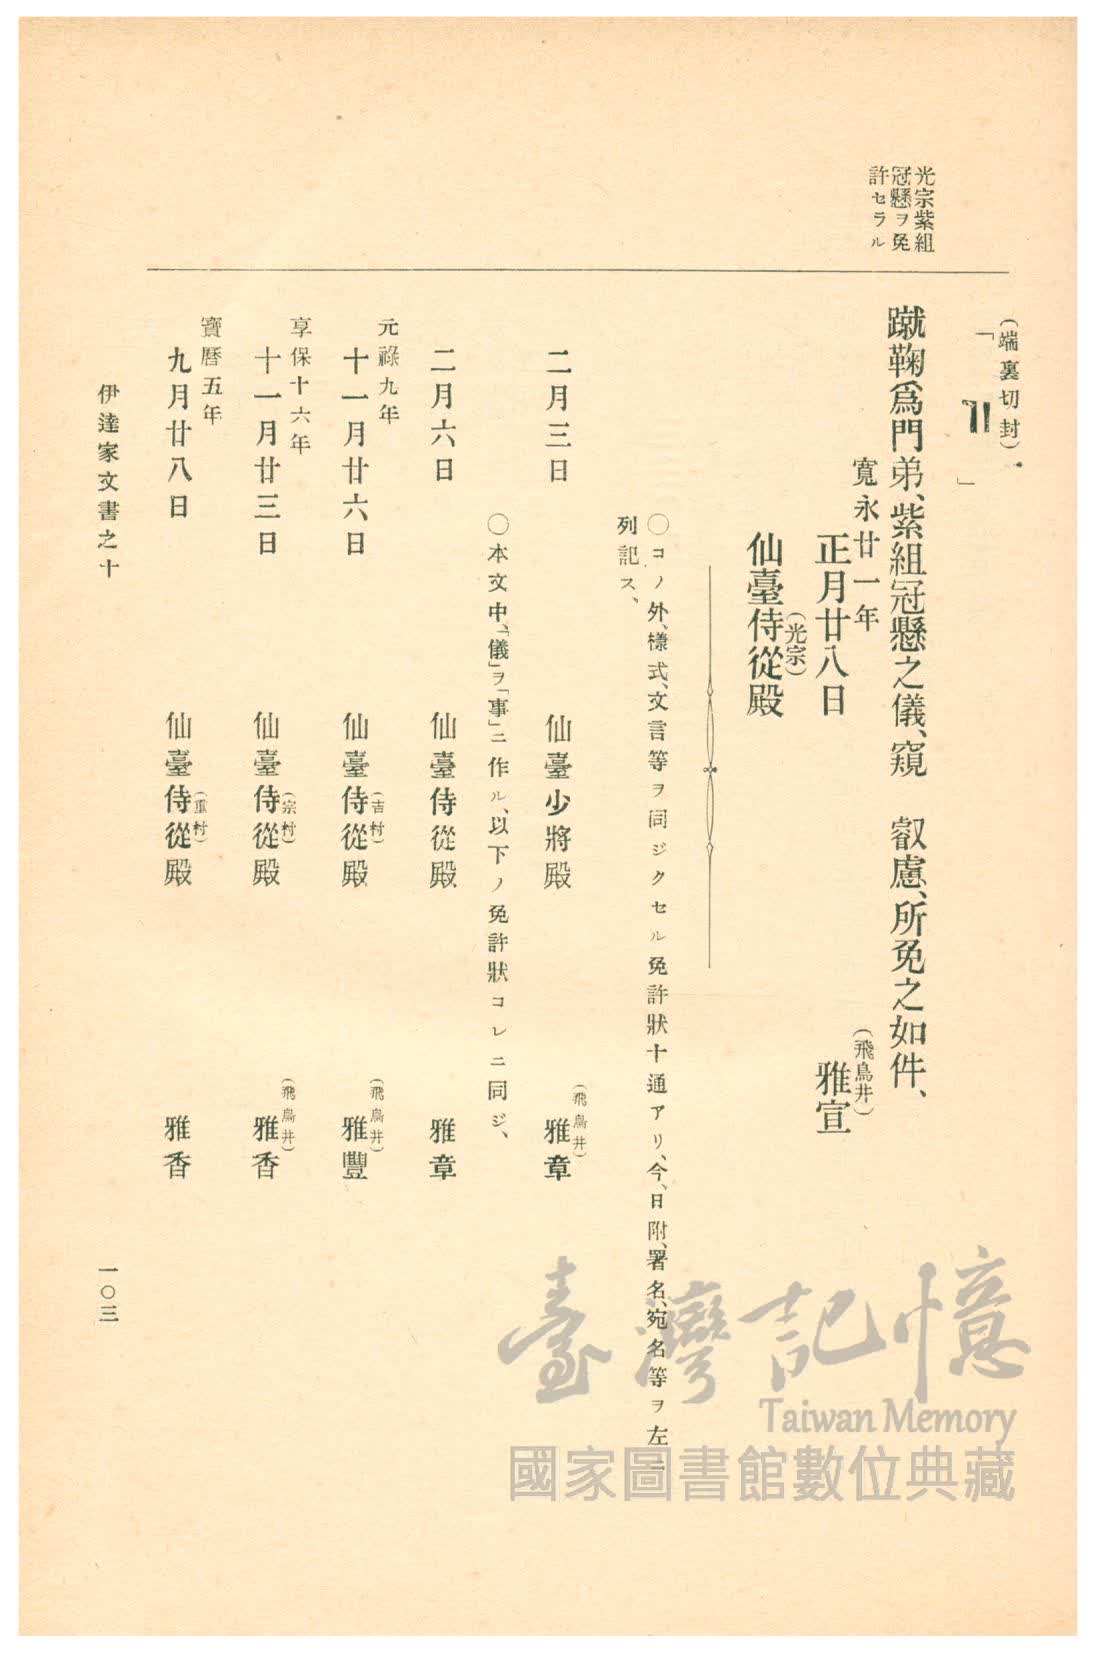 光宗紫組
冠懸ヲ免
許セラル
(端裏切封)
「
」
蹴鞠爲門弟、紫組冠懸之儀、窺　叡慮、所免之如件、
寬永廿一年
正月廿八日
(飛鳥井)
雅宣
(光宗)
仙臺侍從殿
〇コノ外、樣式、文言等ヲ同ジクセル免許狀十通アリ、今、日附、署名、宛名等ヲ左ニ
列記ス、
二月三日
仙臺少將殿
(飛鳥井)
雅章
〇本文中、「儀」ヲ「事」ニ作ル、以下ノ免許狀コレニ同ジ、
二月六日
仙臺侍從殿
雅章
元祿九年
十一月廿六日
(吉村)
仙臺侍從殿
(飛鳥井)
雅豐
享保十六年
十一月廿三日
(宗村)
仙臺侍從殿
(飛鳥井)
雅香
寶曆五年
九月廿八日
(重村)
仙臺侍從殿
雅香
伊達家文書之十
一〇三
臺灣記憶
Taiwan Memory
國家圖書館數位典藏